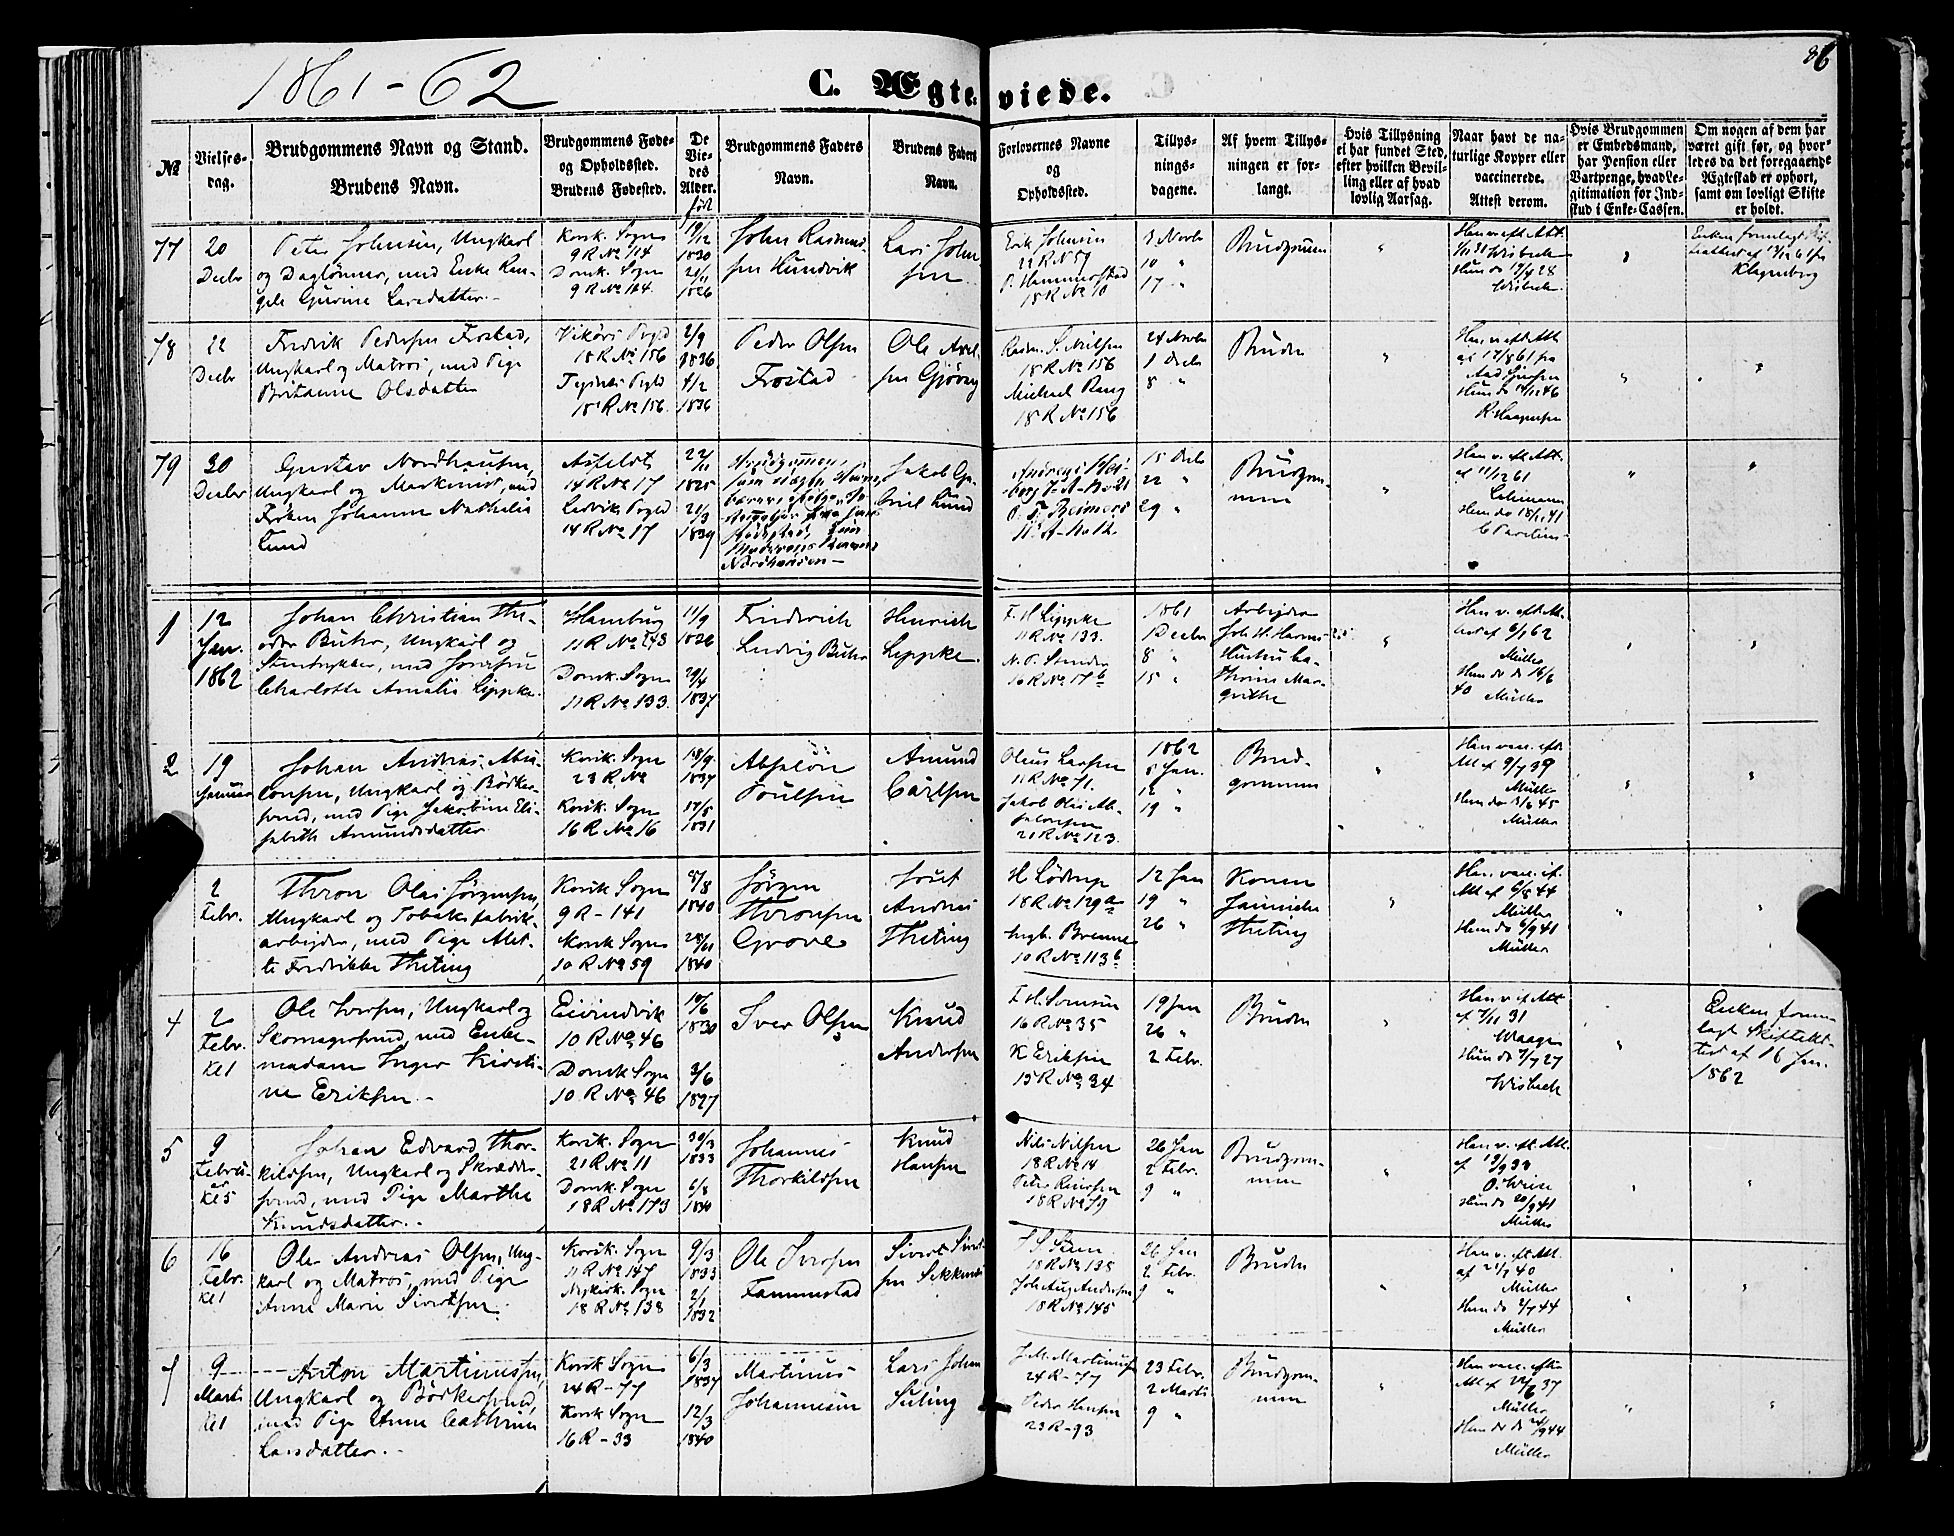 1861-62
C. Ægteviede.
86
No
Vielses-
dag.
Brudgommens Navn og Stand.
Brudens Navn.
Brudgommens Føde-
og Opholdssted.
Brudens Fødested.
De
Vie-
des
Alder.
født
Brudgommens Faders
Navn.
Brudens Faders
Navn.
Forlovernes Navne
og
Opholdssted.
Tillys-
nings-
dagene.
Af hvem Tillys-
ningen er for-
langt.
Hvis Tillysning
ei har fundet Sted,
efter hvilken Bevil-
ling eller af hvad
lovlig Aarsag.
Naar havt de na-
turlige Kopper eller
vaccinerede.
Attest derom.
Hvis Brudgommen
er Embedsmand,
har Pension eller
Vartpenge, hvad Le-
gitimation for Ind-
skud i Enke-Cassen.
Om nogen af dem har
været gift før, og hvor-
ledes da det foregaaende
Ægteskab er ophørt,
samt om lovligt Skifte
er holdt.
77
20
Decbr
Peter Johnsen, Ungkarl
og Daglønner, med Enke Ran-
gele Gurine Larsdatter.
Korsk. Sogn
9 R No 114
Domk. Sogn
9 R No 114.
19/12
1830
1826
John Rasmus-
sen Hundvik
Lars John-
sen
Erik Johnsen
22 R No 59
P. Hammerstad
18 R No 10
3 Novbr
10 "
17 "
Brudgommen
"
Wisbech
Hun do 14/9 28
Wisbech
"
Klagenberg
78
22
Decbr
Fredrik Pedersen Frostad,
Ungkarl og Matros, med Pige
Britanne Olsdatter
Vikørs Prgld
18 R No 156
18 R No 156.
2/9
1836
4/2
1836
Peder Olsen
Frostad
Ole Axel-
sen Gjøvåg
18 R No 156
Michael Rang
18 R No 156
24 Novbr
1 Decbr
8 "
Bruden
"
Han v. eft. Att.
af 17/8 61 fra
R. Haagensen
"
"
79
30
Decbr
Gustav Nordhausen,
Ungkarl og Maskinist, med
Frøken Johanne Nathalia
Lund
14 R No 17
Ledviks Prgld
14 R No 17
22/11
1825
21/3
1839
Brudgommen,
Nordhausen
Jakob Ga-
briel Lund
15 Decbr
22 "
29 "
Brudgom-
men
"
Han v. eft. Att.
af 11/12 61
Lehmann
Hun do 18/11 41
"
"
1
12
Jan.
1862
Johan Christian The-
odor Buhr, Ungkarl og
Stentrykker, med Jomfru
Charlotte Amalia Lippke.
Hamburg
Domk. Sogn
11 R No 133.
11/9
1826
29/4
1837
Friederich
Ludvig Buhr
Henrich
Lippke
F. H. Lippke
11 R No 133.
N. P. Stender
16 R No 17 b
1861
1 Decbr
8 "
15 "
Arbejder
Joh. H. Harms
Hustru Ca-
thrine Mar-
grethe
"
Han v. eft. At-
test af 6/1 62
Müller
Hun do do 16/6
40 Müller
"
"
2
19
Januar
Johan Andreas Absa-
lonsen, Ungkarl og Bødker-
svend, med Pige Jakobine Eli-
sabeth Amundsdatter
Korsk. Sogn
23 R No
Korsk. Sogn
16 R No 16
18/9
1837
17/5
1831
Absalon
Poulsen
Amund
Carlsen
Olaus Larsen
11 R No 71.
Jakob Olai Ab-
salonsen
21 R No 123
1862
5 Jan.
12 "
19 "
Brud-
gommen
"
Han vacc. eft.
Att af 9/7 39
Müller
Hun do 3/6 45
Müller
"
"
2
Febr.
Thron Olai Jørgensen,
Ungkarl og Tobaksfabrik-
arbejder, med Pige Alet-
te Fredrikke Theting
Korsk Sogn
9 R - 141
Korsk Sogn
10 R No 59
5/8
1840
28/11
1840
Jørgen
Thronsen
Grove
Josef
Andreas
Theting
H. Lødrup
18 R No 129 a
Ingb. Brenne
10 R No 113 b
12 Jan
19 "
26 "
Konen
Theting
"
Han vacc. ef.
Att af 6/8 44
Müller
Hun do 6/9 41
Müller
"
"
4
2
Febr.
Kl 1
Ole Iversen, Ungkarl og
Skomagersvend, med Enke-
madame Inger Kirsti-
ne Eriksen.
Eivindvik
10 R No 46
Domk Sogn
10 R No 46
10/6
1830
3/6
1827
Iver Olsen
Knud
Andersen
16 R No 35
K Eriksen
15 R No 34
19 Jan
26 "
2 Febr.
Bruden
"
Han v. ef. Att
af 7/11 31
Waage
Hun do 7/7 27
Wisbech
"
Enken frem-
lagt Skifteat-
test af 16 Jan.
1862
5
9
Februar
Kl 5
Johan Edvard Thor-
kildsen, Ungkarl og Skrædder-
svend, med Pige Marthe
Knudsdatter.
Korsk. Sogn
21 R No 11
Domk. Sogn
18 R No 173
30/3
1833
6/8
1840
Johannes
Thorkildsen
Knud
Hansen
Nils Nilsen
18 R No 14
Peter Reiersen
18 R No 79
26 Jan
2 Febr.
9 "
Brudgom-
men
"
Han v. eft. Att.
af 19/9 33
O. Weise
Hun do 20/9 41
Müller
"
"
6
16
Febr.
Kl 1
Ole Andreas Olsen, Ung-
karl og Matros, med Pige
Anne Marie Sivertsen.
Korsk. Sogn
11 R No 147
Nykirk. Sogn
18 R No 138
9/3
1833
2/1
1832
Ole Iversen
Fammestad
Sivert Sivert-
sen
18 R No 138
Joh. Aug. Andersen
18 R No 145
26 Jan
2 Febr.
9 "
Bruden
"
Han v. eft. Att.
af 21/7 40
Müller
Hun do 2/7 44
Müller
"
"
7
9
Marts
Kl 1
Anton Martinussen,
Ungkarl og Bødkersvend,
med Pige Anne Cathrine
Larsdatter.
Korsk Sogn
24 R - 77
Korsk Sogn
16 R - 33
6/3
1837
12/3
1840
Martinus
Johannesen
Lars John
Suling
J. M. Martinussen
24 R - 77
Peder Hansen
23 R - 93
23 Febr.
2 Marts
9 "
Brudgom-
men
"
Han vacc. efter
Att af 22/6 37
Müller
Hun do do 24/9 44
Müller
"
"